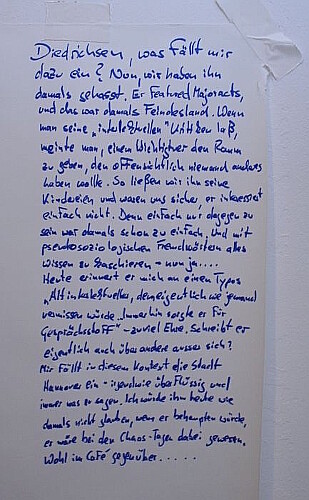 Diedrichsen, was fällt mir
dazu ein? Nun, wir haben ihn
damals gehasst. Er featured Majoracts,
und das war damals Feindesland. Wenn
man seine "intelektuellen" Kritiken laß,
meinte man, einem Wichtigtuer den Raum
zu geben, den offensichtlich niemand anders
haben wollte. So ließen wir ihn seine
Kindereien und waren uns sicher, er interessiert
einfach nicht. Denn einfach nur dagegen zu
sein war damals schon zu einfach. Und mit
pseudosoziologischen Fremdwörtern alles
wissen zu kaschieren - nun ja....
Heute erinnert er mich an einen Typos
"Altintelektueller, dem eigentlich wie jemand
vermissen würde. Immerhin sorgte er für
Gesprächsstoff" - zuviel Ehre. Schreibt er
eigentlich auch über andere ausser sich?
Mir fällt in diesem Kontext die Stadt
Hannover ein - irgendwie überflüssig und
immer was zu sagen. Ich würde ihm heute wie
damals nicht glauben, wenn er behaupten würde,
er wäre bei den Chaos-Tagen dabei gewesen.
Wohl im Café gegenüber.....